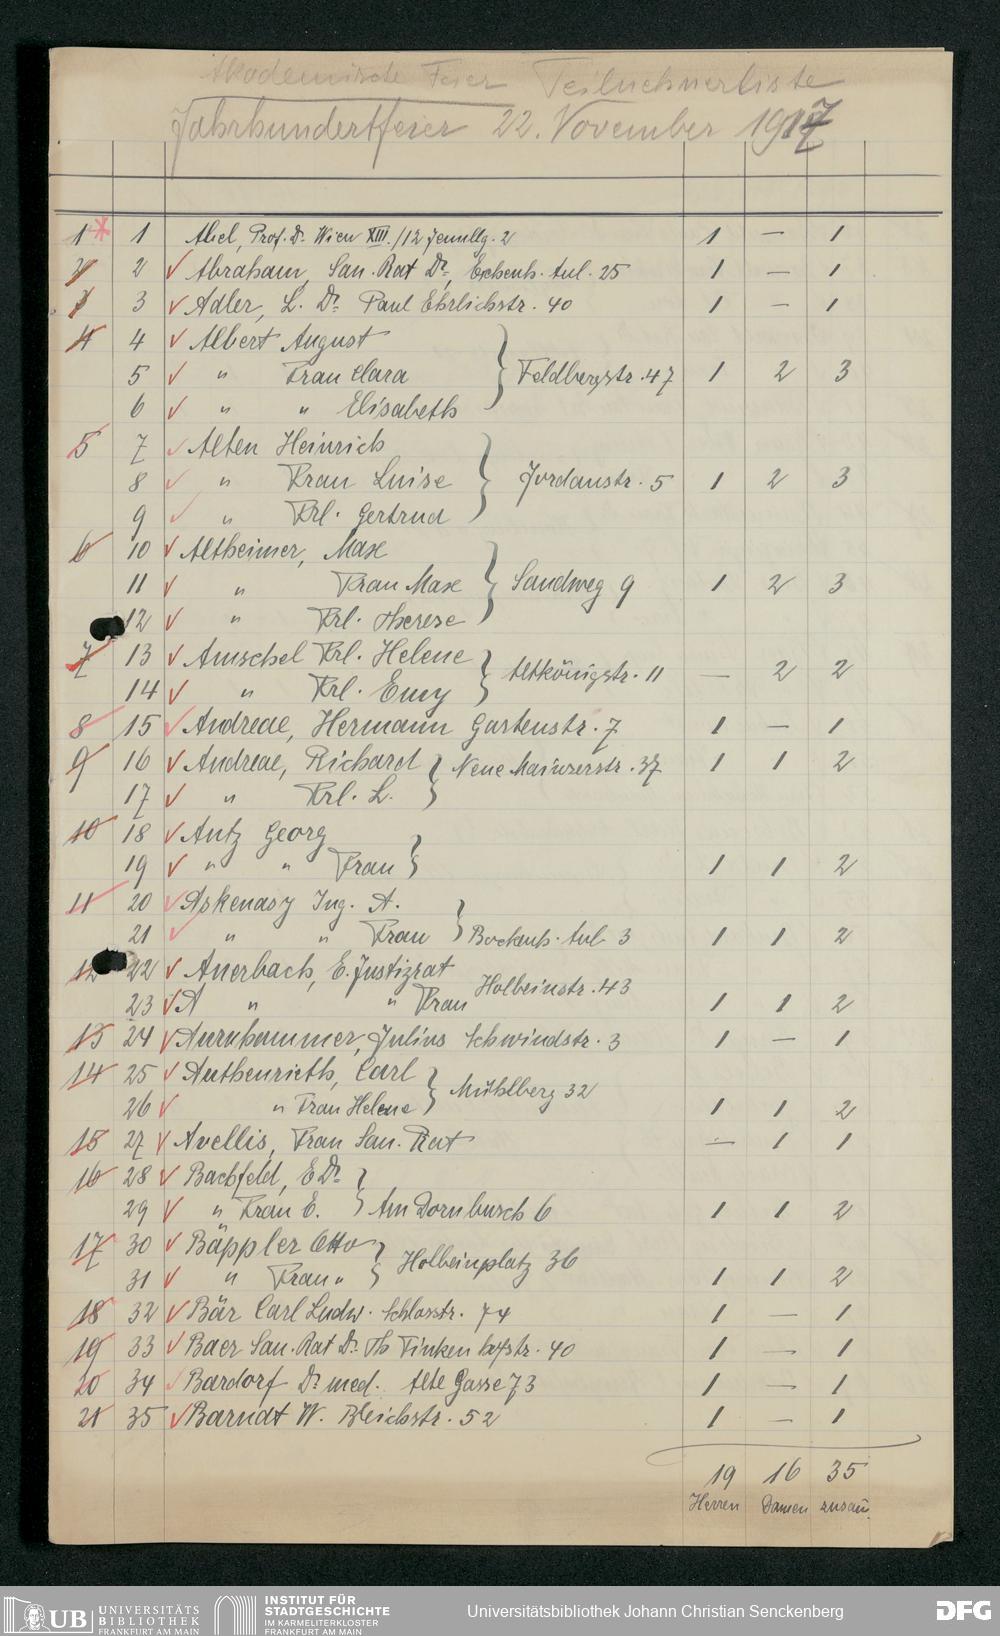 Akademische Feier Teilnehmerliste
Jahrhundertfeier 22. November 1917
1 1 Abel, Prof. Dr. Wien XIII./12 1 — 1
2 2 Abraham, San. Rat Dr., Eschenh. Anl. 25 1 — 1
3 3 Adler, L. Dr. Paul Ehrlichstr. 40 1 — 1
4 4 Albert August
5 " Frau Clara Feldbergstr. 47 1 2 3
6 " " Elisabeth
5 7 Alten Heinrich
8 " Frau Luise Jordanstr. 5 1 2 3
9 " Frl. Gertrud
6 10 Altheimer, Max
11 " Frau Max Sandweg 9 1 2 3
12 " Frl. Therese
7 13 Amschel Frl. Helene Altkönigstr. 11 — 2 2
14 " Frl. Emy
8 15 Andreae, Hermann Gartenstr. 7 1 — 1
9 16 Andreae, Richard Neue Mainzerstr. 37 1 1 2
17 " Frl. L.
10 18 Antz Georg
19 " " Frau 1 1 2
11 20 Askenasy Ing. A.
21 " " Frau Bockenh. Anl. 3 1 1 2
12 22 Auerbach, E. Justizrat Holbeinstr. 43
23 A " " Frau 1 1 2
13 24 Aurnhammer, Julius Schwindstr. 3 1 — 1
14 25 Authenrieth, Carl Mühlberg 32
26 " Frau Helene 1 1 2
15 27 Avellis, Frau San. Rat — 1 1
16 28 Bachfeld, E Dr.
29 " Frau E. Am Dornbusch 6 1 1 2
17 30 Bäppler Otto Holbeinplatz 36
31 " Frau " 1 1 2
18 32 Bär Carl Ludw. Schlosstr. 74 1 — 1
19 33 Baer San. Rat Dr. Th Finkenhofstr. 40 1 — 1
20 34 Bardorf Dr med. Alte Gasse 73 1 — 1
21 35 Barndt W. Bleichstr. 52 1 — 1
19 16 35
Herren Damen zusam̄.
UB UNIVERSITÄTS
BIBLIOTHEK
FRANKFURT AM MAIN
INSTITUT FÜR
STADTGESCHICHTE
IM KARMELITERKLOSTER
FRANKFURT AM MAIN
Universitätsbibliothek Johann Christian Senckenberg
DFG